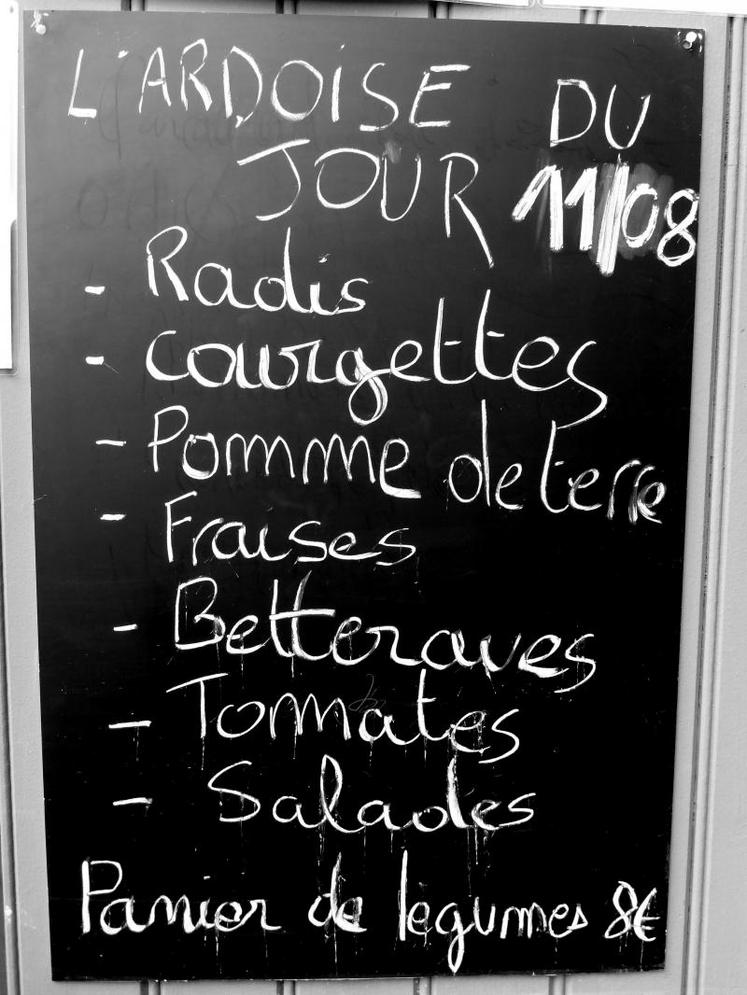 L'ARDOISE DU
JOUR 11/08
- Radis
- courgettes
- Pomme de terre
- Fraises
- Betteraves
- Tomates
- Salades
Panier de legumes 8€